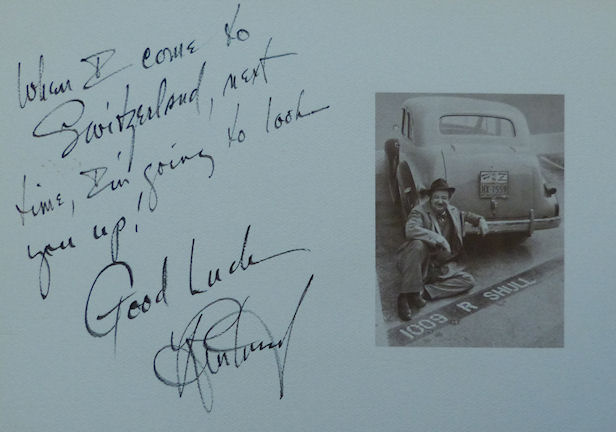 When I come to
Switzerland, next
time, I'm going to look
you up!
Good Luck
1009 R SHULL